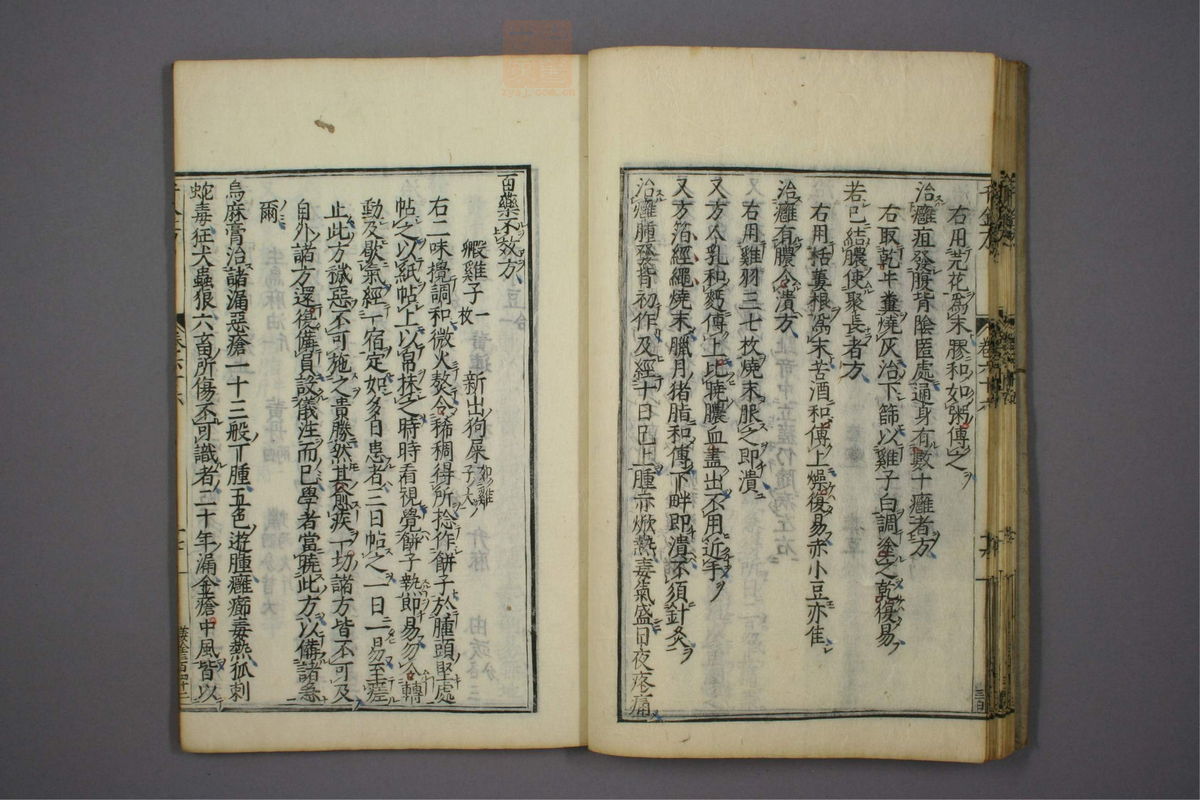 右用芫花爲末膠和如粥傅之
治癰疽發腹背陰匿處通身有數十癰者方
右取乾牛糞燒灰治下篩以雞子白調塗之乾復易
若已結膿使聚長者方
右用栝蔞根爲末苦酒和傅上燥復易赤小豆亦佳
治癰有膿令潰方
右用雞羽三七枚燒末服之即潰
又方人乳和麪傅上比曉膿血盡出不用近手
又方箔經繩燒末臘月猪脂和傅下畔即潰不須針灸
治癰腫發背初作及經十日已上腫赤焮熱毒氣盛日夜疼痛
百藥不效方
毈雞子一枚 新出狗屎如雞子大
右二味攪調和微火熬令稀稠得所捻作餅子於腫頭堅處
帖之以紙帖上以帛抹之時時看視覺餅子熱即易勿令轉
動及歇氣經一宿定如多日患者三日帖之一日一易至瘥
止此方穢惡不可施之貴勝然其愈疾一切諸方皆不可及
自外諸方還復備員設儀注而已學者當曉此方以備諸急
爾
烏麻膏治諸漏惡瘡一十三般丁腫五色遊腫癰癤毒熱狐刺
蛇毒狂犬蟲狼六畜所傷不可識者二十年漏金瘡中風皆以